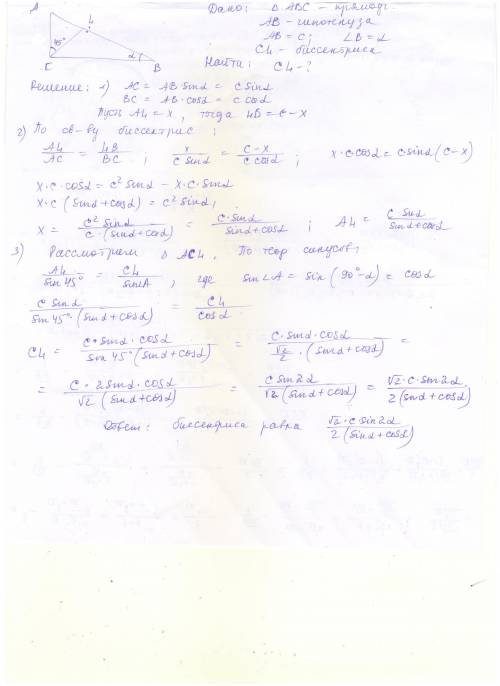 Дано: Δ ABC - прямоуг.
AB - гипотенуза
AB = c; ∠B = α
CL - биссектриса
Найти: CL - ?
A
L
45°
α
C
B
Решение: 1) AC = AB·sinα = c sinα
BC = AB·cosα = c cosα
Пусть AL = x, тогда LB = c - x
2) По св-ву биссектрис:
AL/AC = LB/BC ; x/(c sinα) = (c-x)/(c cosα) ; x·c·cosα = c·sinα (c-x)
x·c·cosα = c² sinα - x·c·sinα
x·c (sinα + cosα) = c² sinα;
x = c² sinα/(c·(sinα+cosα)) = c·sinα/(sinα+cosα) ; AL = c sinα/(sinα+cosα)
3) Рассмотрим Δ ACL. По теор синусов:
AL/sin45° = CL/sin∠A , где sin∠A = sin(90°-α) = cosα
c sinα/(sin45°·(sinα+cosα)) = CL/cosα
CL = c·sinα·cosα/(sin45°(sinα+cosα)) = c·sinα·cosα/(√2/2·(sinα+cosα)) =
= c·2sinα·cosα/(√2(sinα+cosα)) = c sin2α/(√2(sinα+cosα)) = √2·c·sin2α/(2(sinα+cosα))
Ответ: биссектриса равна √2·c sin2α/(2(sinα+cosα))